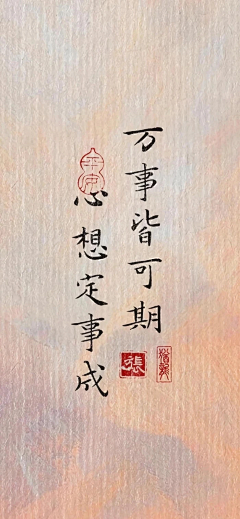 万事皆可期
心想定事成
張